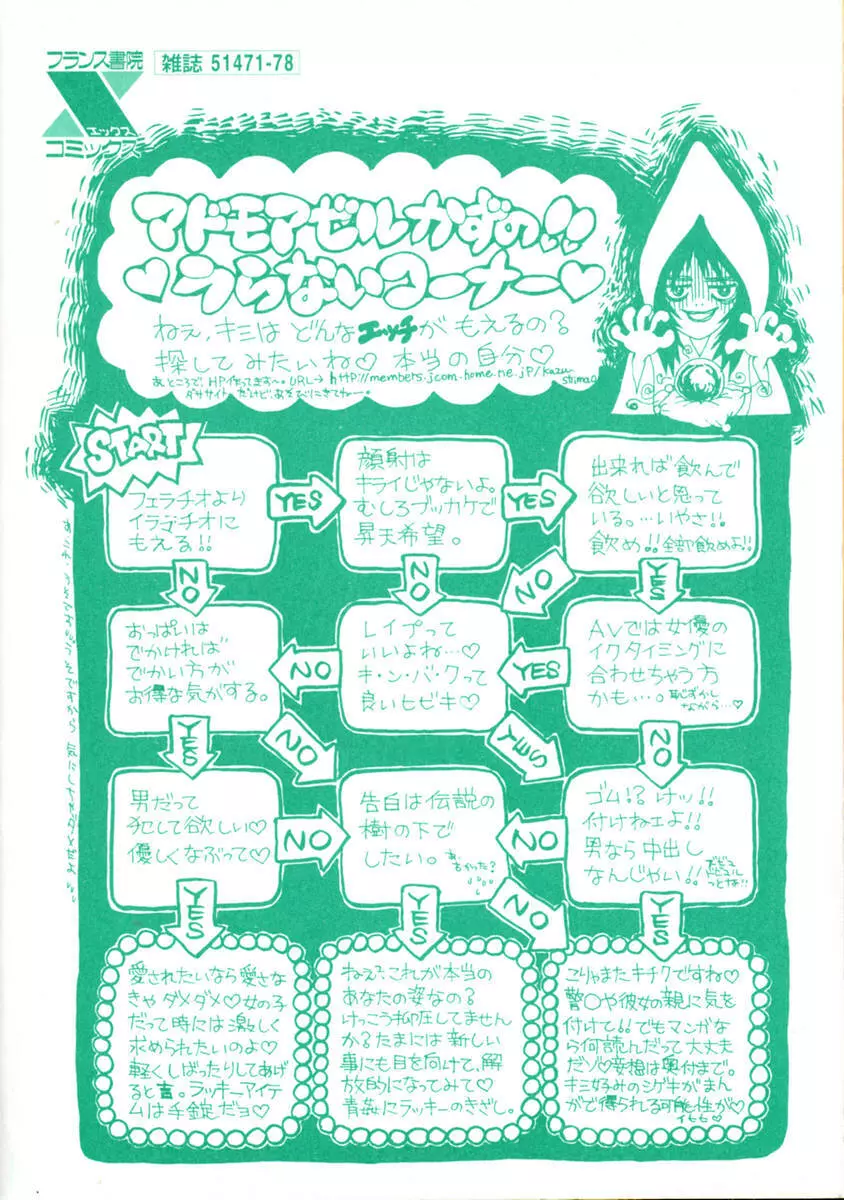 フランス書院
エックス
コミックス
雑誌 51471-78
マドモアゼルかずの!!
♡うらないコーナー♡
ねぇ、キミは どんなエッチが もえるの?
探して みたいね♡ 本当の自分♡
あ、ところで、HP作ってきます〜。URL→http://members.jcom.home.ne.jp/kazu
shima0
ダササイト。だけど、あそびにきてねー。
START
フェラチオより
イラマチオに
もえる!!
YES
顔射は
キライじゃないよ。
むしろブッカケで
昇天希望。
YES
出来れば飲んで
欲しいと思って
いる。…いやさ!!
飲め!!全部飲めよ!!
NO
NO
NO
YES
おっぱいは
でかければ
でかい方が
お得な気がする。
NO
レイプって
いいよね…♡
キ・ン・バ・クって
良いヒビキ♡
YES
AVでは女優の
イクタイミングに
合わせちゃう方
かも…。
恥ずかし
ながら…♡
YES
NO
YES
NO
男だって
犯して欲しい♡
優しくなぶって♡
NO
告白は伝説の
樹の下で
したい。
NO
ゴム!?けッ!!
付けねェよ!!
男なら中出し
なんじゃい!!
YES
YES
NO
YES
愛されたいなら愛さな
きゃダメダメ♡女の子
だって時には激しく
求められたいのよ♡
軽くしばったりしてあげ
ると吉。ラッキーアイテ
ムは手錠だヨ♡
ねぇ?これが本当の
あなたの姿なの?
けっこう抑圧してません
か?たまには新しい
事にも目を向けて、解
放的になってみて♡
青姦にラッキーのきざし。
こりゃまたキチクですね♡
警〇や彼女の親に気を
付けて。でもマンガな
ら何読んだって大丈夫
だゾ♡妄想は奥付まで。
キミ好みのシゲキがまん
がで得られる可能性が♡
イヒヒ♡